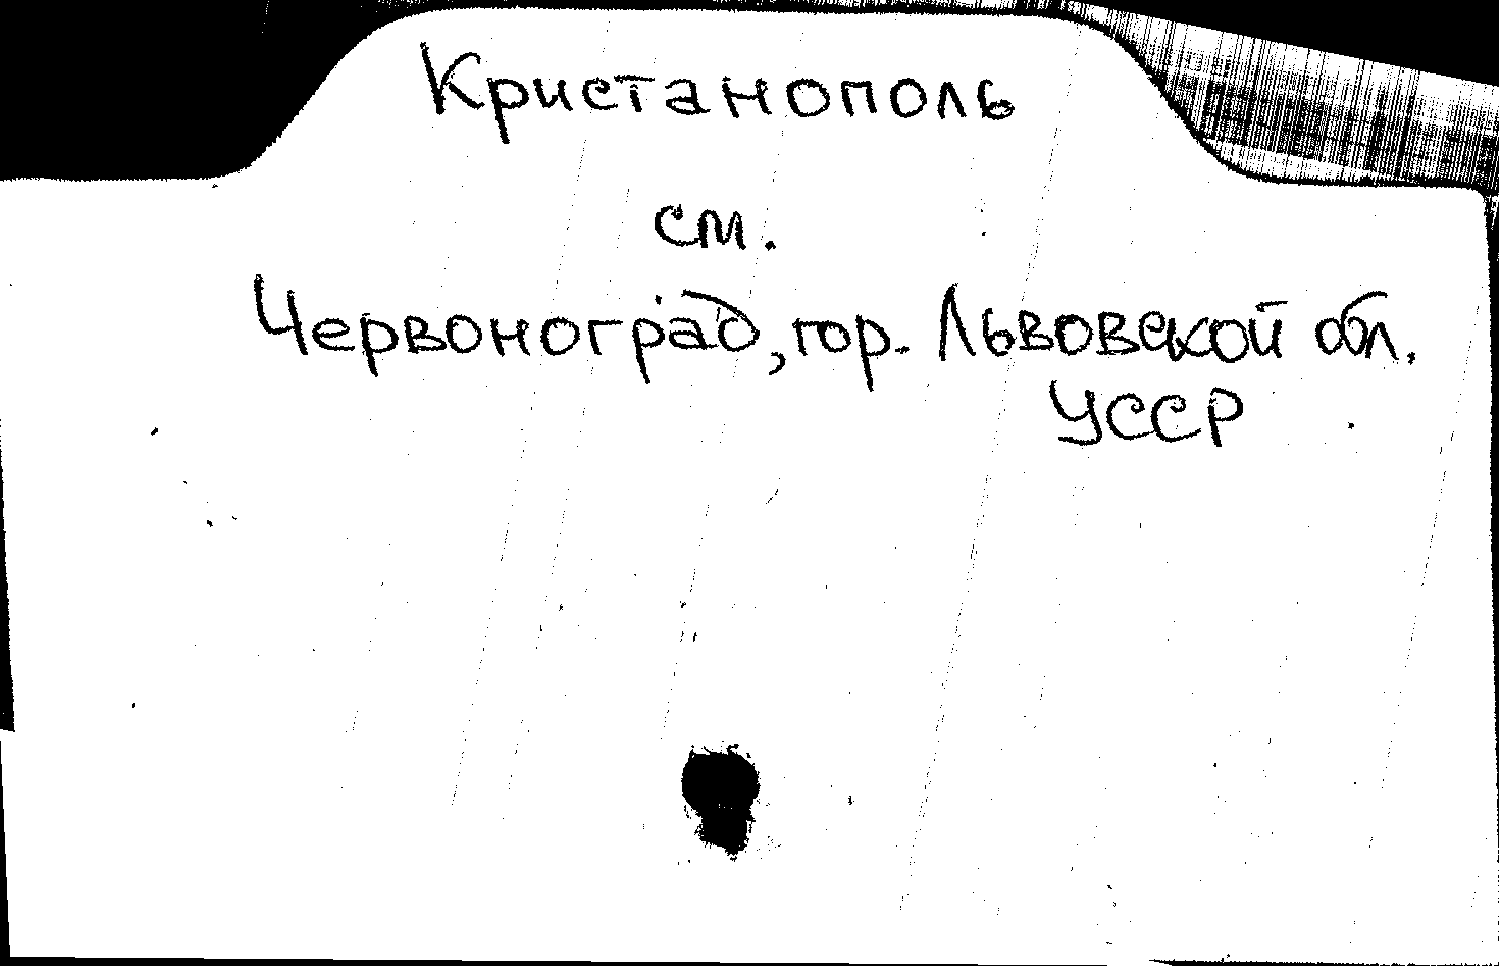 Кристанополь
см.
Червоноград, гор. Львовской обл.
УССР